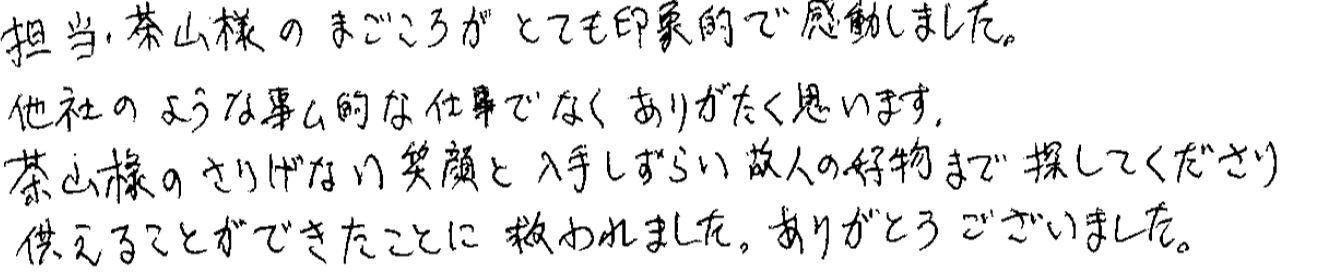 担当・茶山様のまごころがとても印象的で感動しました。
他社のような事ム的な仕事でなくありがたく思います。
茶山様のさりげない笑顔と入手しずらい故人の好物まで探してくださり
供えることができたことに救われました。ありがとうございました。